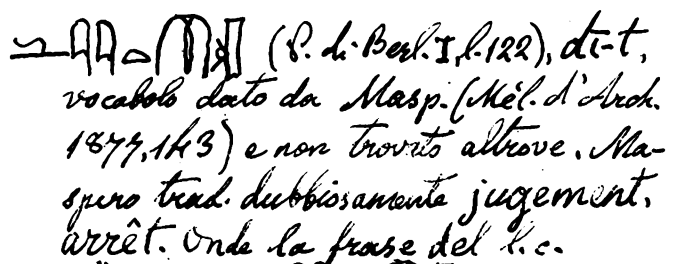 (P. di Berl. I, l. 122), di-t,
vocabolo dato da Masp. (Mél. d'Arch.
1877, 143) e non trovato altrove. Ma-
spero trad. dubbiosamente jugement,
arrêt. Onde la frase del l. c.